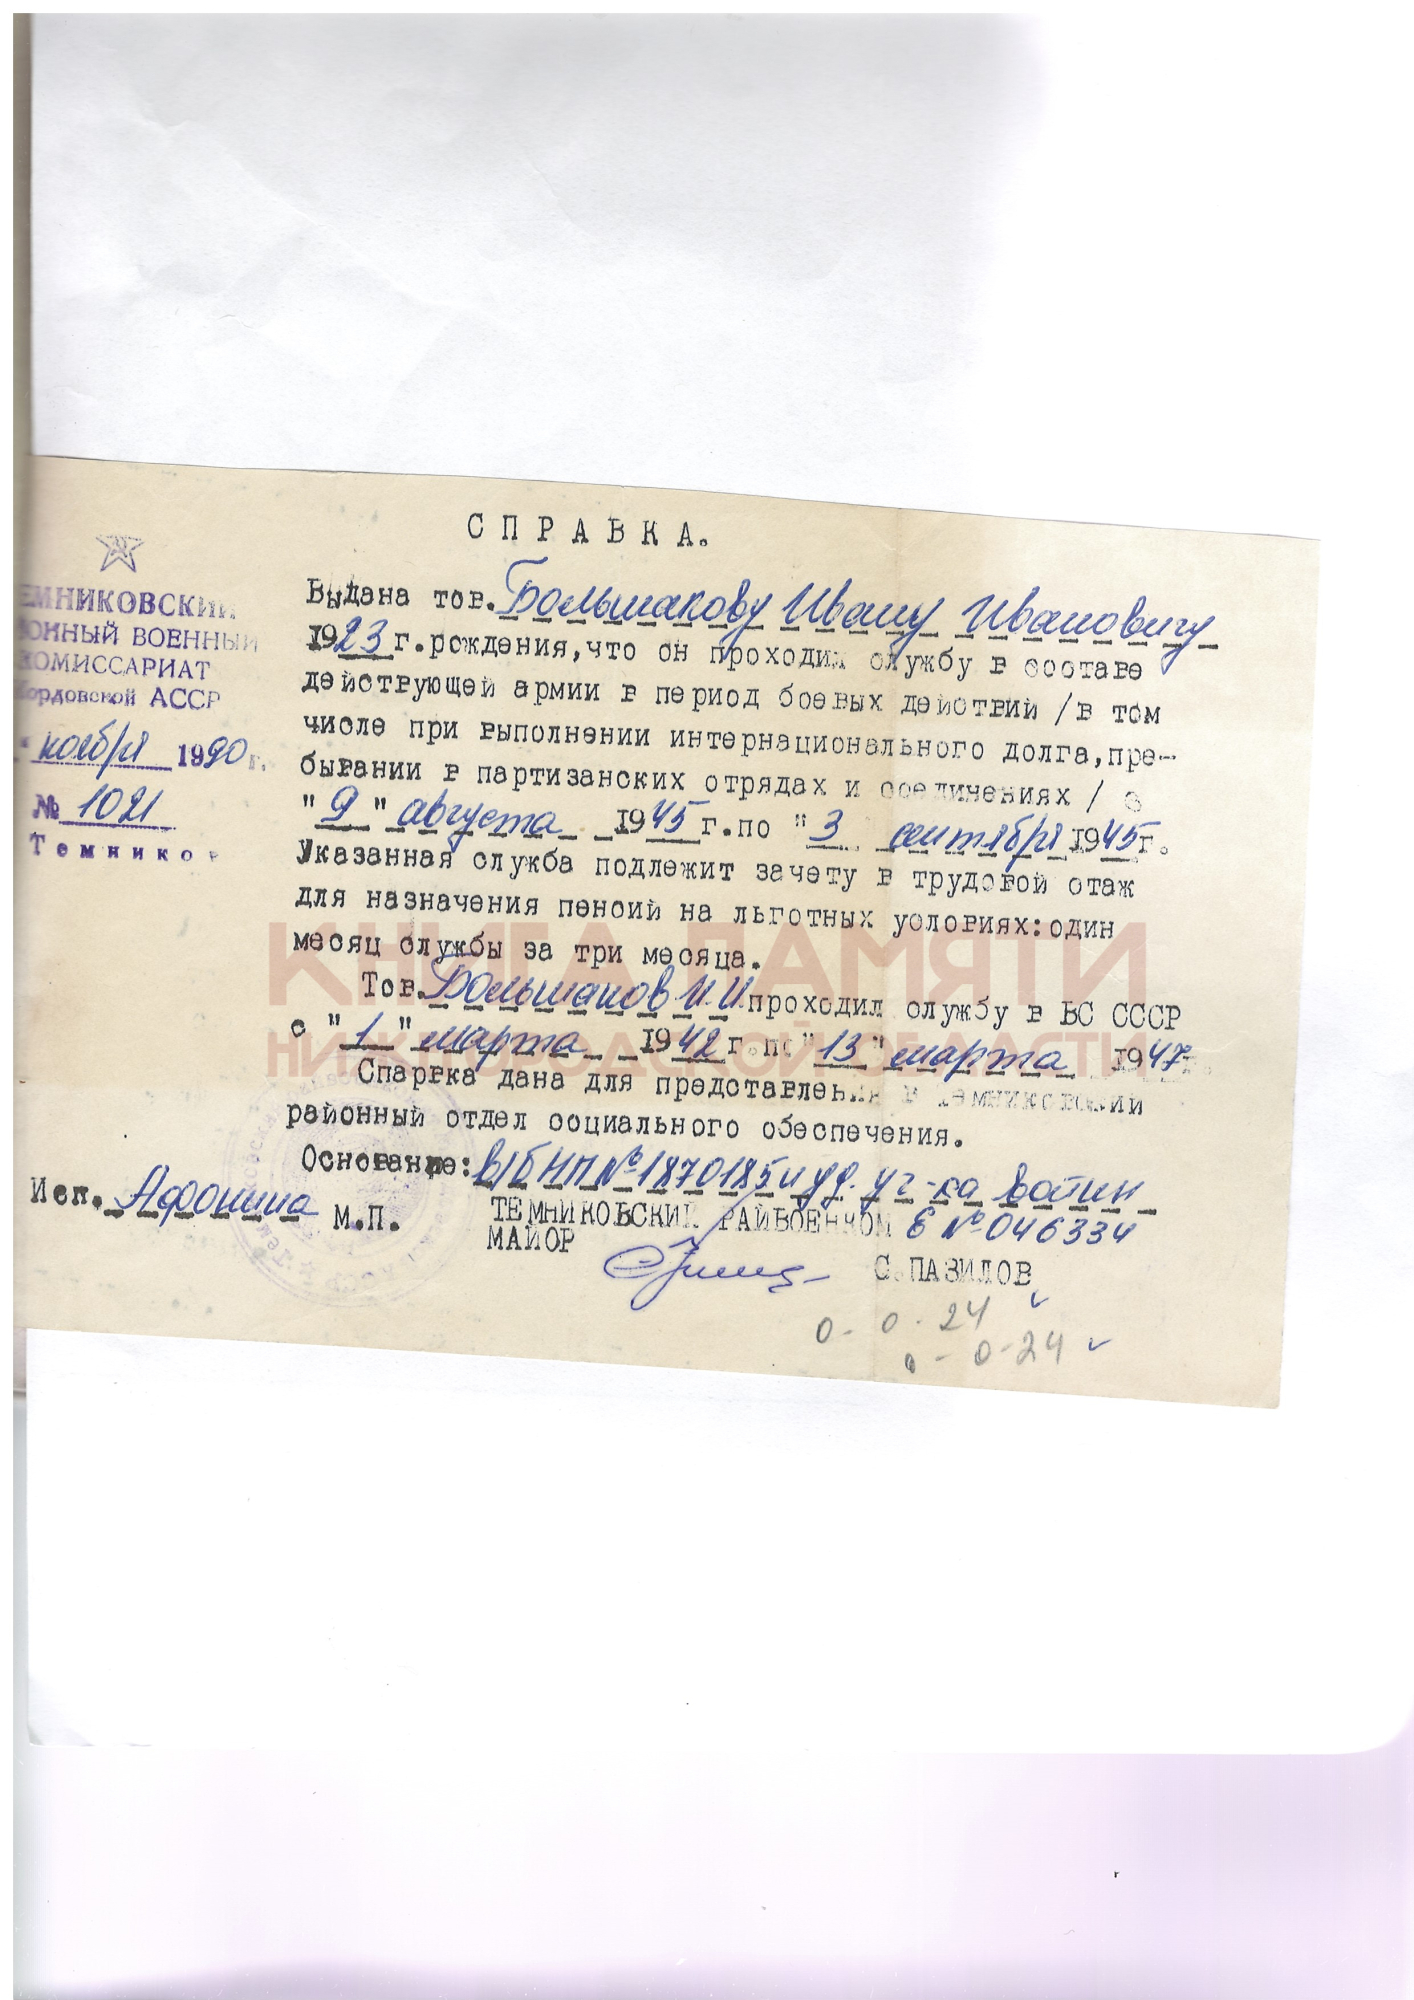 СПРАВКА.
ЕМНИКОВСКИЙ
ОННЫЙ ВОЕННЫЙ
КОМИССАРИАТ
Мордовской АССР
" ноября 1990 г.
№ 1021
Темников
Выдана тов. Большакову Ивану Ивановичу
1923 г.рождения,что он проходил службу в составе
действующей армии в период боевых действий /в том
числе при выполнении интернационального долга,пре-
бывании в партизанских отрядах и соединениях / с
"9" августа 1945 г.по "3 сентября 1945г.
Указанная служба подлежит зачету в трудовой стаж
для назначения пенсий на льготных условиях:один
месяц службы за три месяца.
Тов. Большаков И.И. проходил службу в ВС СССР
с "1" марта 1942 г.по "13" марта 1947г.
Спаргка дана для представления в Темниковский
районный отдел социального обеспечения.
Основание: в/б НП №1870185 и уд. уч-ка войны
Исп. Афонина М.П.
ТЕМНИКОВСКИЙ РАЙВОЕНКОМ Е №046334
МАЙОР
С.ПАЗИЛОВ
0 - 0 - 24
0 - 0 - 24
КНИГА ПАМЯТИ
НИЖЕГОРОДСКОЙ ОБЛАСТИ